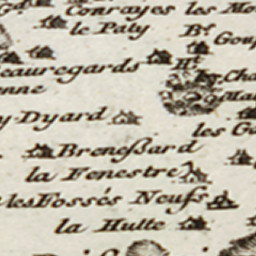 Conrayes les Mo
le Paty Bt.
Goup
eauregards Ht.
enne Cha
y Dyard Mau
les Ga
Breneßard
la Fenestre
les Fossés Neufs
la Hulte